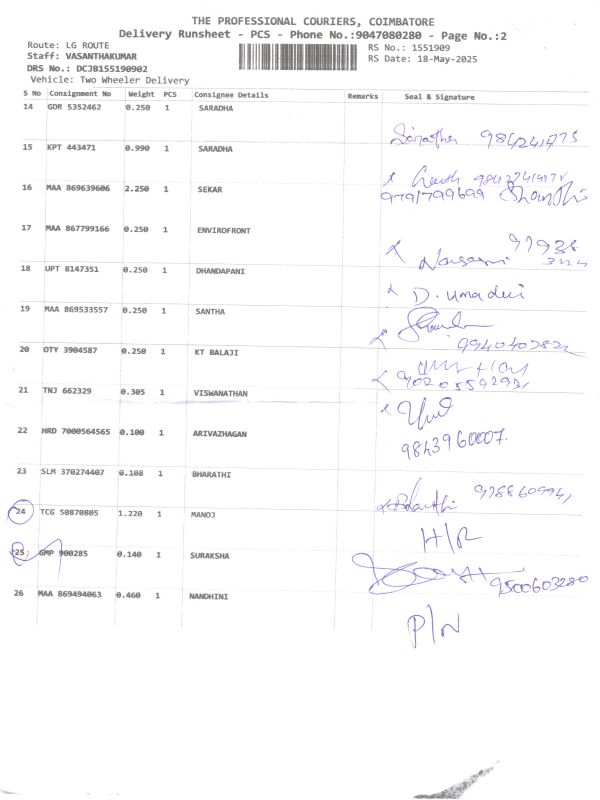 THE PROFESSIONAL COURIERS, COIMBATORE
Delivery Runsheet - PCS - Phone No.:9047080280 - Page No.:2
Route: LG ROUTE
RS No.: 1551909
Staff: VASANTHAKUMAR
RS Date: 18-May-2025
DRS No.: DCJB155190902
Vehicle: Two Wheeler Delivery
S No Consignment No Weight PCS Consignee Details Remarks Seal & Signature
14 GDR 5352462 0.250 1 SARADHA
15 KPT 443471 0.990 1 SARADHA
16 MAA 869639606 2.250 1 SEKAR
9791799699 Shanthi
17 MAA 867799166 0.250 1 ENVIROFRONT
18 UPT 8147351 0.250 1 DHANDAPANI
D. Umadevi
19 MAA 869533557 0.250 1 SANTHA
20 OTY 3904587 0.250 1 KT BALAJI
21 TNJ 662329 0.305 1 VISWANATHAN
22 HRD 7000564565 0.100 1 ARIVAZHAGAN
9843960007.
23 SLM 370274407 0.108 1 BHARATHI
Bharathi
24 TCG 50870805 1.220 1 MANOJ
H/R
25 GMP 900285 0.140 1 SURAKSHA
9500603280
26 MAA 869494063 0.460 1 NANDHINI
P/N